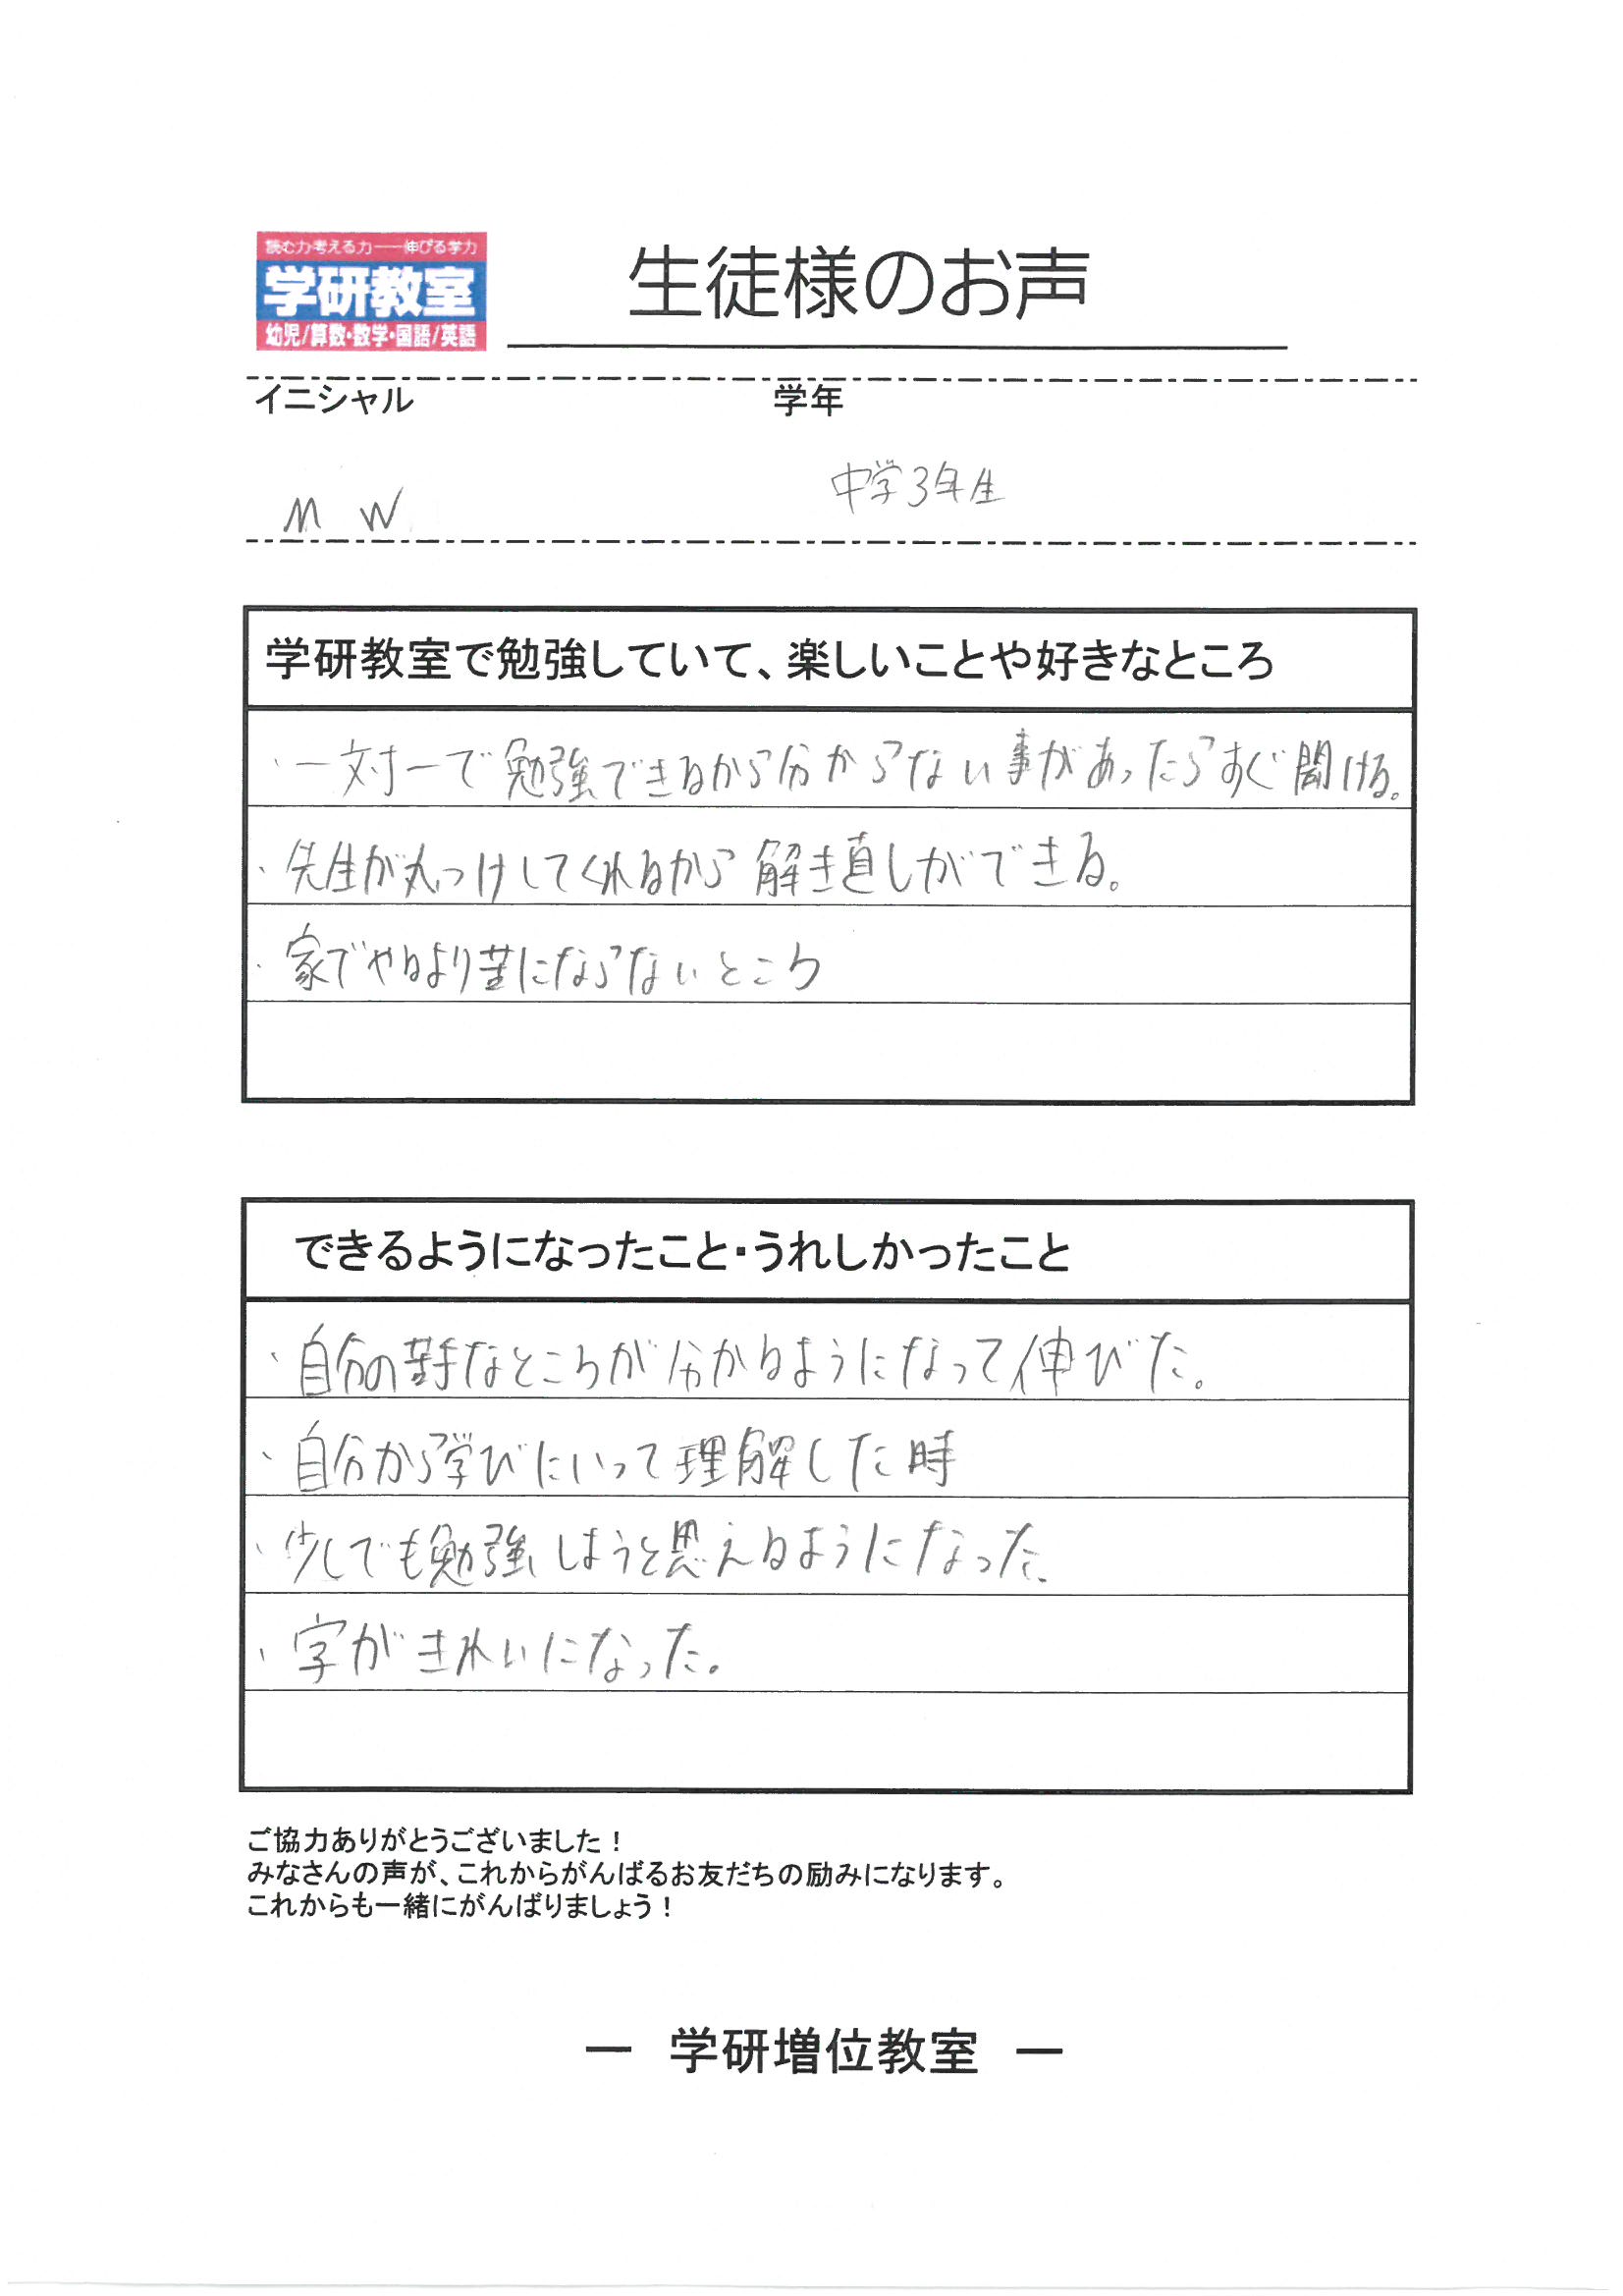 読む力・考える力——伸びる学力
学研教室
幼児/算数・数学・国語/英語
生徒様のお声
イニシャル 学年
M W 中学3年生
学研教室で勉強していて、楽しいことや好きなところ
・一対一で勉強できるから分からない事があったらすぐ聞ける。
・先生が丸つけしてくれるから解き直しができる。
・家でやるより苦にならないところ
できるようになったこと・うれしかったこと
・自分の苦手なところが分かるようになって伸びた。
・自分から学びにいって理解した時
・少しでも勉強しようと思えるようになった。
・字がきれいになった。
ご協力ありがとうございました！
みなさんの声が、これからがんばるお友だちの励みになります。
これからも一緒にがんばりましょう！
— 学研増位教室 —